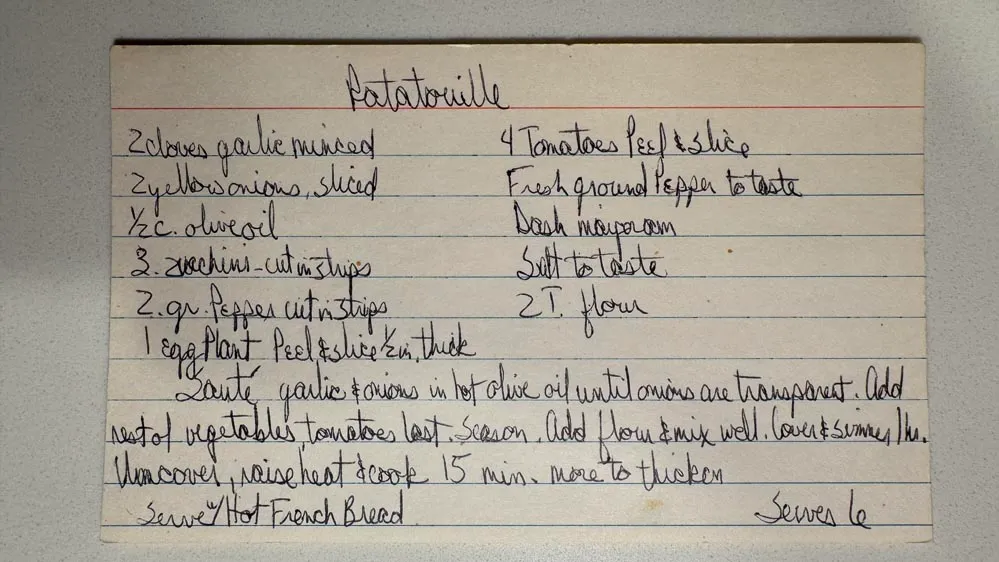 Ratatouille
2 cloves garlic minced
2 yellow onions, sliced
½ c. olive oil
3. zucchini - cut in strips
2. gr. Pepper cut in strips
1 Egg Plant Peel & slice ½ in. thick
4 Tomatoes Peel & slice
Fresh ground Pepper to taste
Dash marjoram
Salt to taste
2 T. flour
Sauté garlic & onions in hot olive oil until onions are transparent. Add
rest of vegetables, tomatoes last. Season. Add flour & mix well. Cover & simmer 1 hr.
Uncover, raise heat & cook 15 min. more to thicken
Serve w/ Hot French Bread
Serves 6